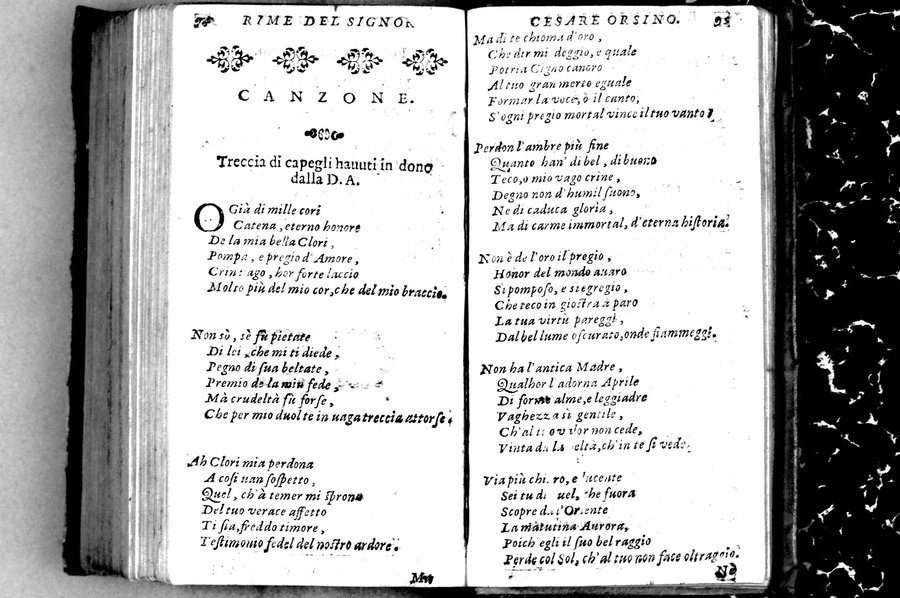 RIME DEL SIGNOR
CANZONE.
Treccia di capegli hauuti in dono
dalla D. A.
O Già di mille cori
Catena, eterno honore
De la mia bella Clori,
Pompa, e pregio d'Amore,
hor forte laccio
Molto più del mio cor, che del mio braccio.
Non sò, sè fù pietate
Di lei, che mi ti diede,
Pegno di sua beltate,
Premio de la mia fede,
Mà crudeltà fù forse,
Che per mio duol te in uaga treccia attorse.
Ah Clori mia perdona
A così uan sospetto,
Quel, ch'à temer mi sprona
Del tuo verace affetto
Ti sia, freddo timore,
Testimonio fedel del nostro ardore.
Ma
CESARE ORSINO. 95
Ma di te chioma d'oro,
Che dir mi deggio, e quale
Potria Cigno canoro
Al tuo gran merto eguale
Formar la voce, ò il canto,
S'ogni pregio mortal vince il tuo vanto?
Perdon l'ambre più fine
Quanto han' di bel, di buono
Teco, o mio vago crine,
Degno non d'humil suono,
Ne di caduca gloria,
Ma di carme immortal, d'eterna historia.
Non è de l'oro il pregio,
Honor del mondo auaro
Si pomposo, e si egregio,
Che teco in giostra à paro
La tua virtù pareggi,
Dal bel lume oscurato, onde fiammeggi.
Non ha l'antica Madre,
Qualhor l'adorna Aprile
Di forme alme, e leggiadre
Vaghezza sì gentile,
Ch'al non cede,
Vinta da la beltà, ch'in te si vede.
Via più chiaro, e lucente
Sei tu di quel, che fuora
Scopre da l'Oriente
La matutina Aurora,
Poich' egli il suo bel raggio
Perde col Sol, ch'al tuo non face oltraggio.
Nè